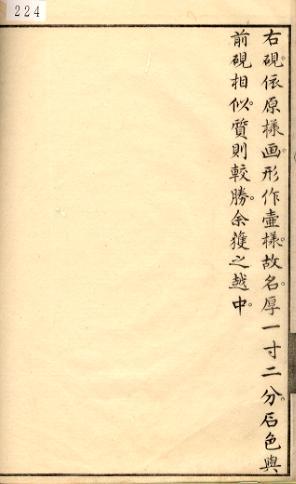 224
右硯。依原樣画。形作壷樣。故名。厚一寸二分。石色與
前硯相似。質則較勝。余獲之越中。